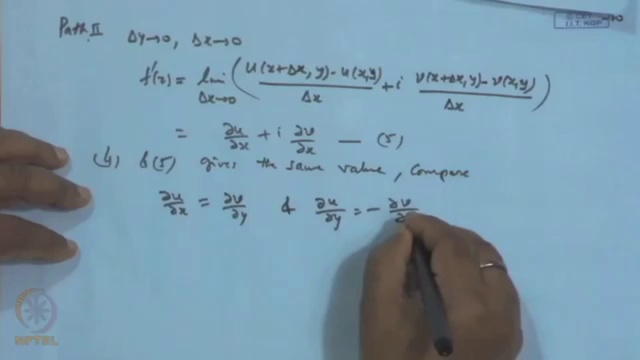 Path II Δy→0, Δx→0
f'(z) = lim Δx→0 ( (u(x+Δx, y) - u(x,y))/Δx + i (v(x+Δx, y) - v(x,y))/Δx )
= ∂u/∂x + i ∂v/∂x — (5)
(4) & (5) gives the same value, compare
∂u/∂x = ∂v/∂y & ∂u/∂y = - ∂v/∂
© CET
I.I.T. KGP
NPTEL